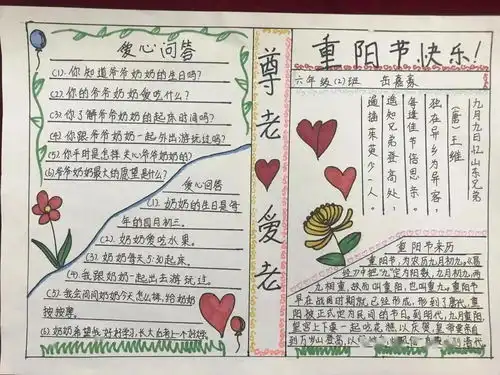 爱心问答
(1).你知道爷爷奶奶的生日吗?
(2).你的爷爷奶奶爱吃什么?
(3).你了解爷爷奶奶的起床时间吗?
(4).你跟爷爷奶奶一起外出游玩过吗?
(5).你平时是怎样关心爷爷奶奶的?
(6).爷爷奶奶最大的愿望是什么?
爱心问答
(1).奶奶的生日是每
年的四月初三。
(2).奶奶爱吃水果。
(3).奶奶每天5:30起床。
(4).我跟奶奶一起出去游玩过。
(5).我会问问奶奶今天怎么样,给奶奶
按按摩。
(6).奶奶希望我好好学习,长大后有一个好
尊老爱老
重阳节快乐!
六年级(2)班 岳嘉豪
九月九日忆山东兄弟
(唐)王维
独在异乡为异客,
每逢佳节倍思亲。
遥知兄弟登高处,
遍插茱萸少一人。
重阳节来历
重阳节,为农历九月初九。《易
经》中把"九"定为阳数,九月初九,两
九相重,故而叫重阳,也叫重九。重阳节
早在战国时期就已经形成,到了唐代,重
阳被正式定为民间的节日。到明代,九月重阳,
皇宫上下要一起吃花糕,以庆贺,皇帝要亲自
到万岁山登高,以
清代